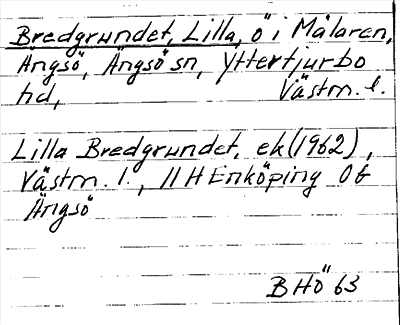 Bredgrundet, Lilla, ö i Mälaren,
Ängsö, Ängsö sn, Yttertjurbo
hd, Västm. l.
Lilla Bredgrundet, ek (1962),
Västm. l., 11 H Enköping 0 b
Ängsö
BHÖ 63